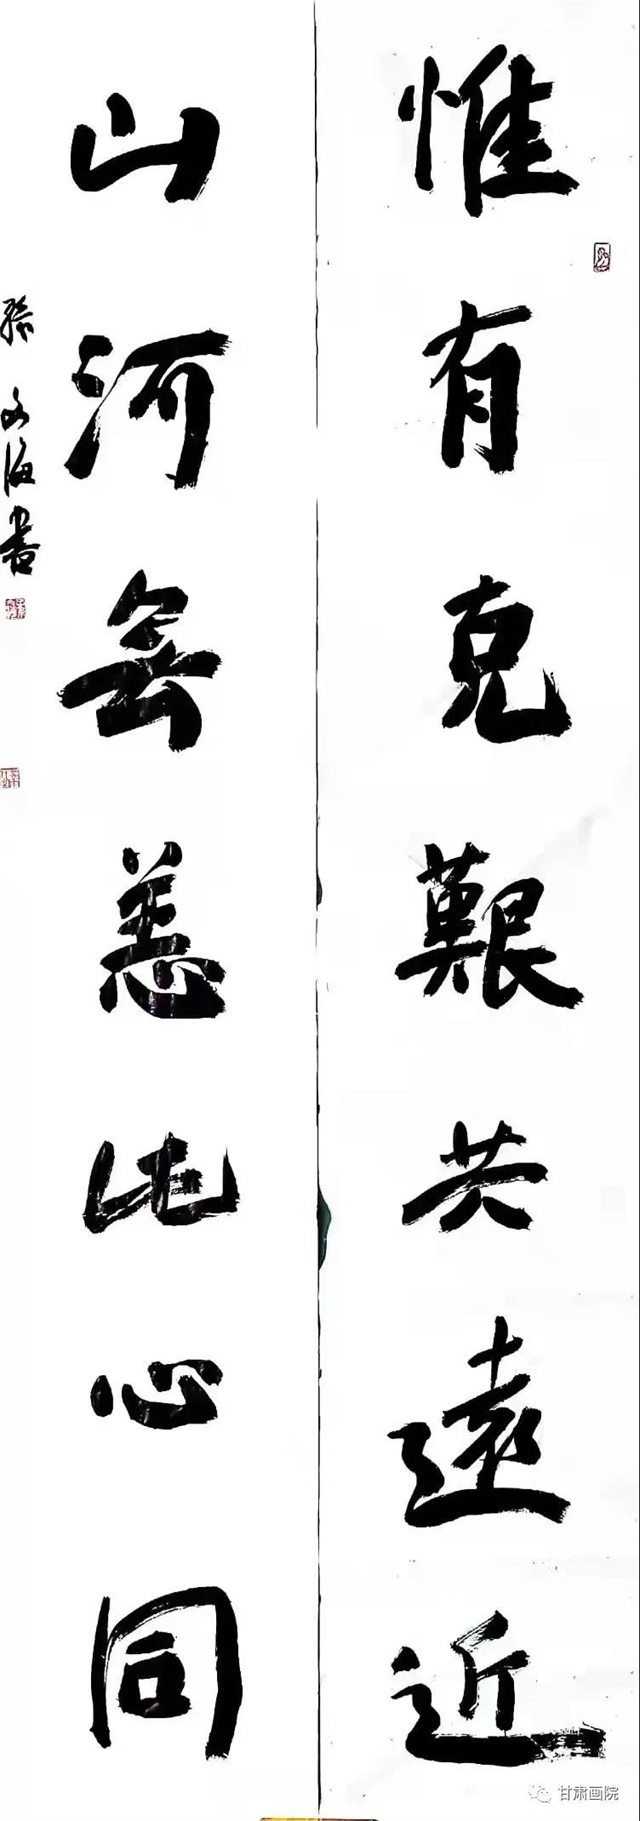 惟有克艱共遠近
山河無恙此心同
張文海書
甘肃画院